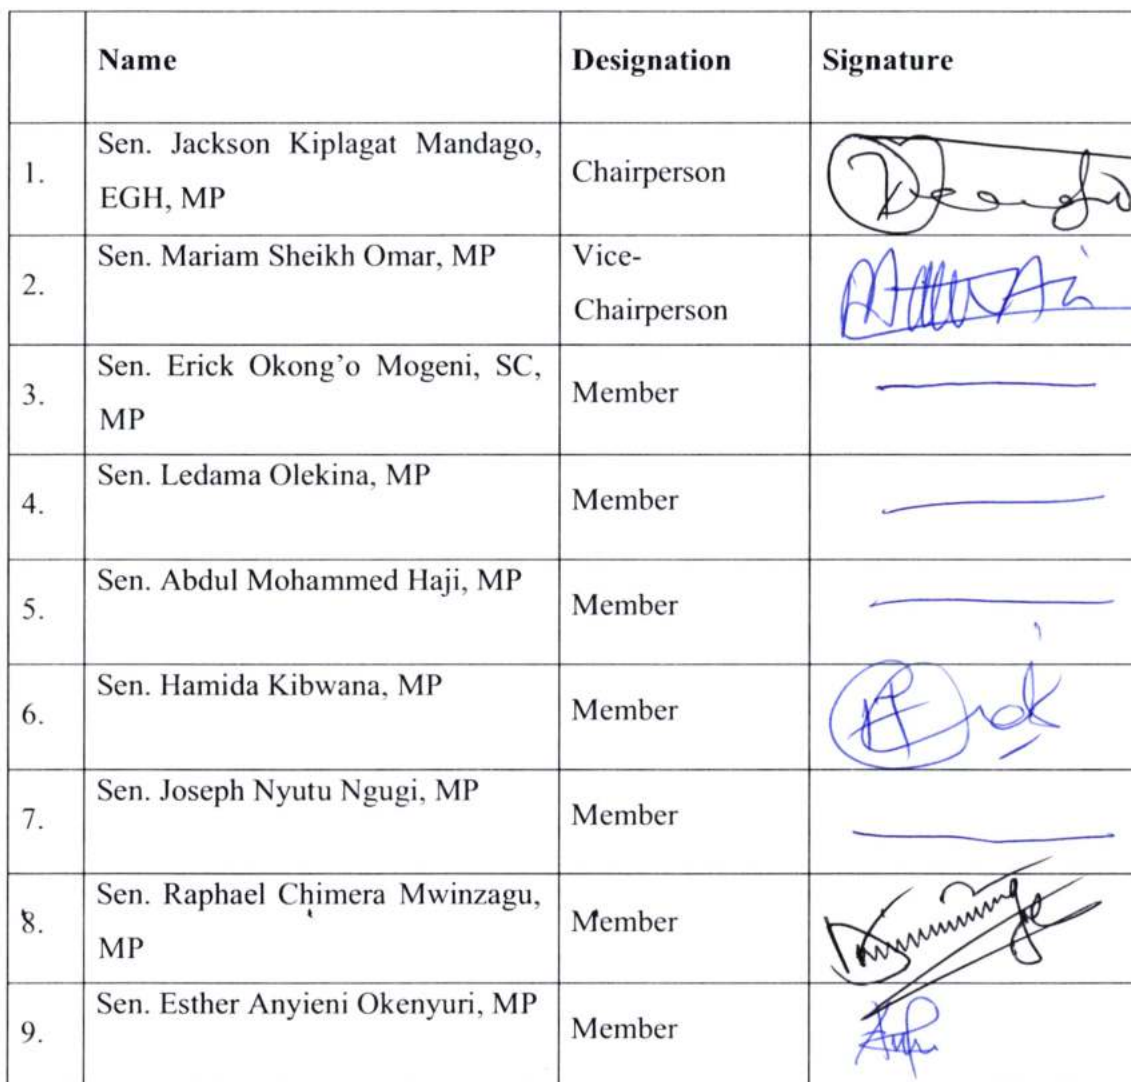 Name Designation Signature
1. Sen. Jackson Kiplagat Mandago, Chairperson
EGH, MP
2. Sen. Mariam Sheikh Omar, MP Vice-
Chairperson
3. Sen. Erick Okong’o Mogeni, SC, Member
MP
4. Sen. Ledama Olekina, MP Member
5. Sen. Abdul Mohammed Haji, MP Member
6. Sen. Hamida Kibwana, MP Member
7. Sen. Joseph Nyutu Ngugi, MP Member
8. Sen. Raphael Chimera Mwinzagu, Member
MP
9. Sen. Esther Anyieni Okenyuri, MP Member